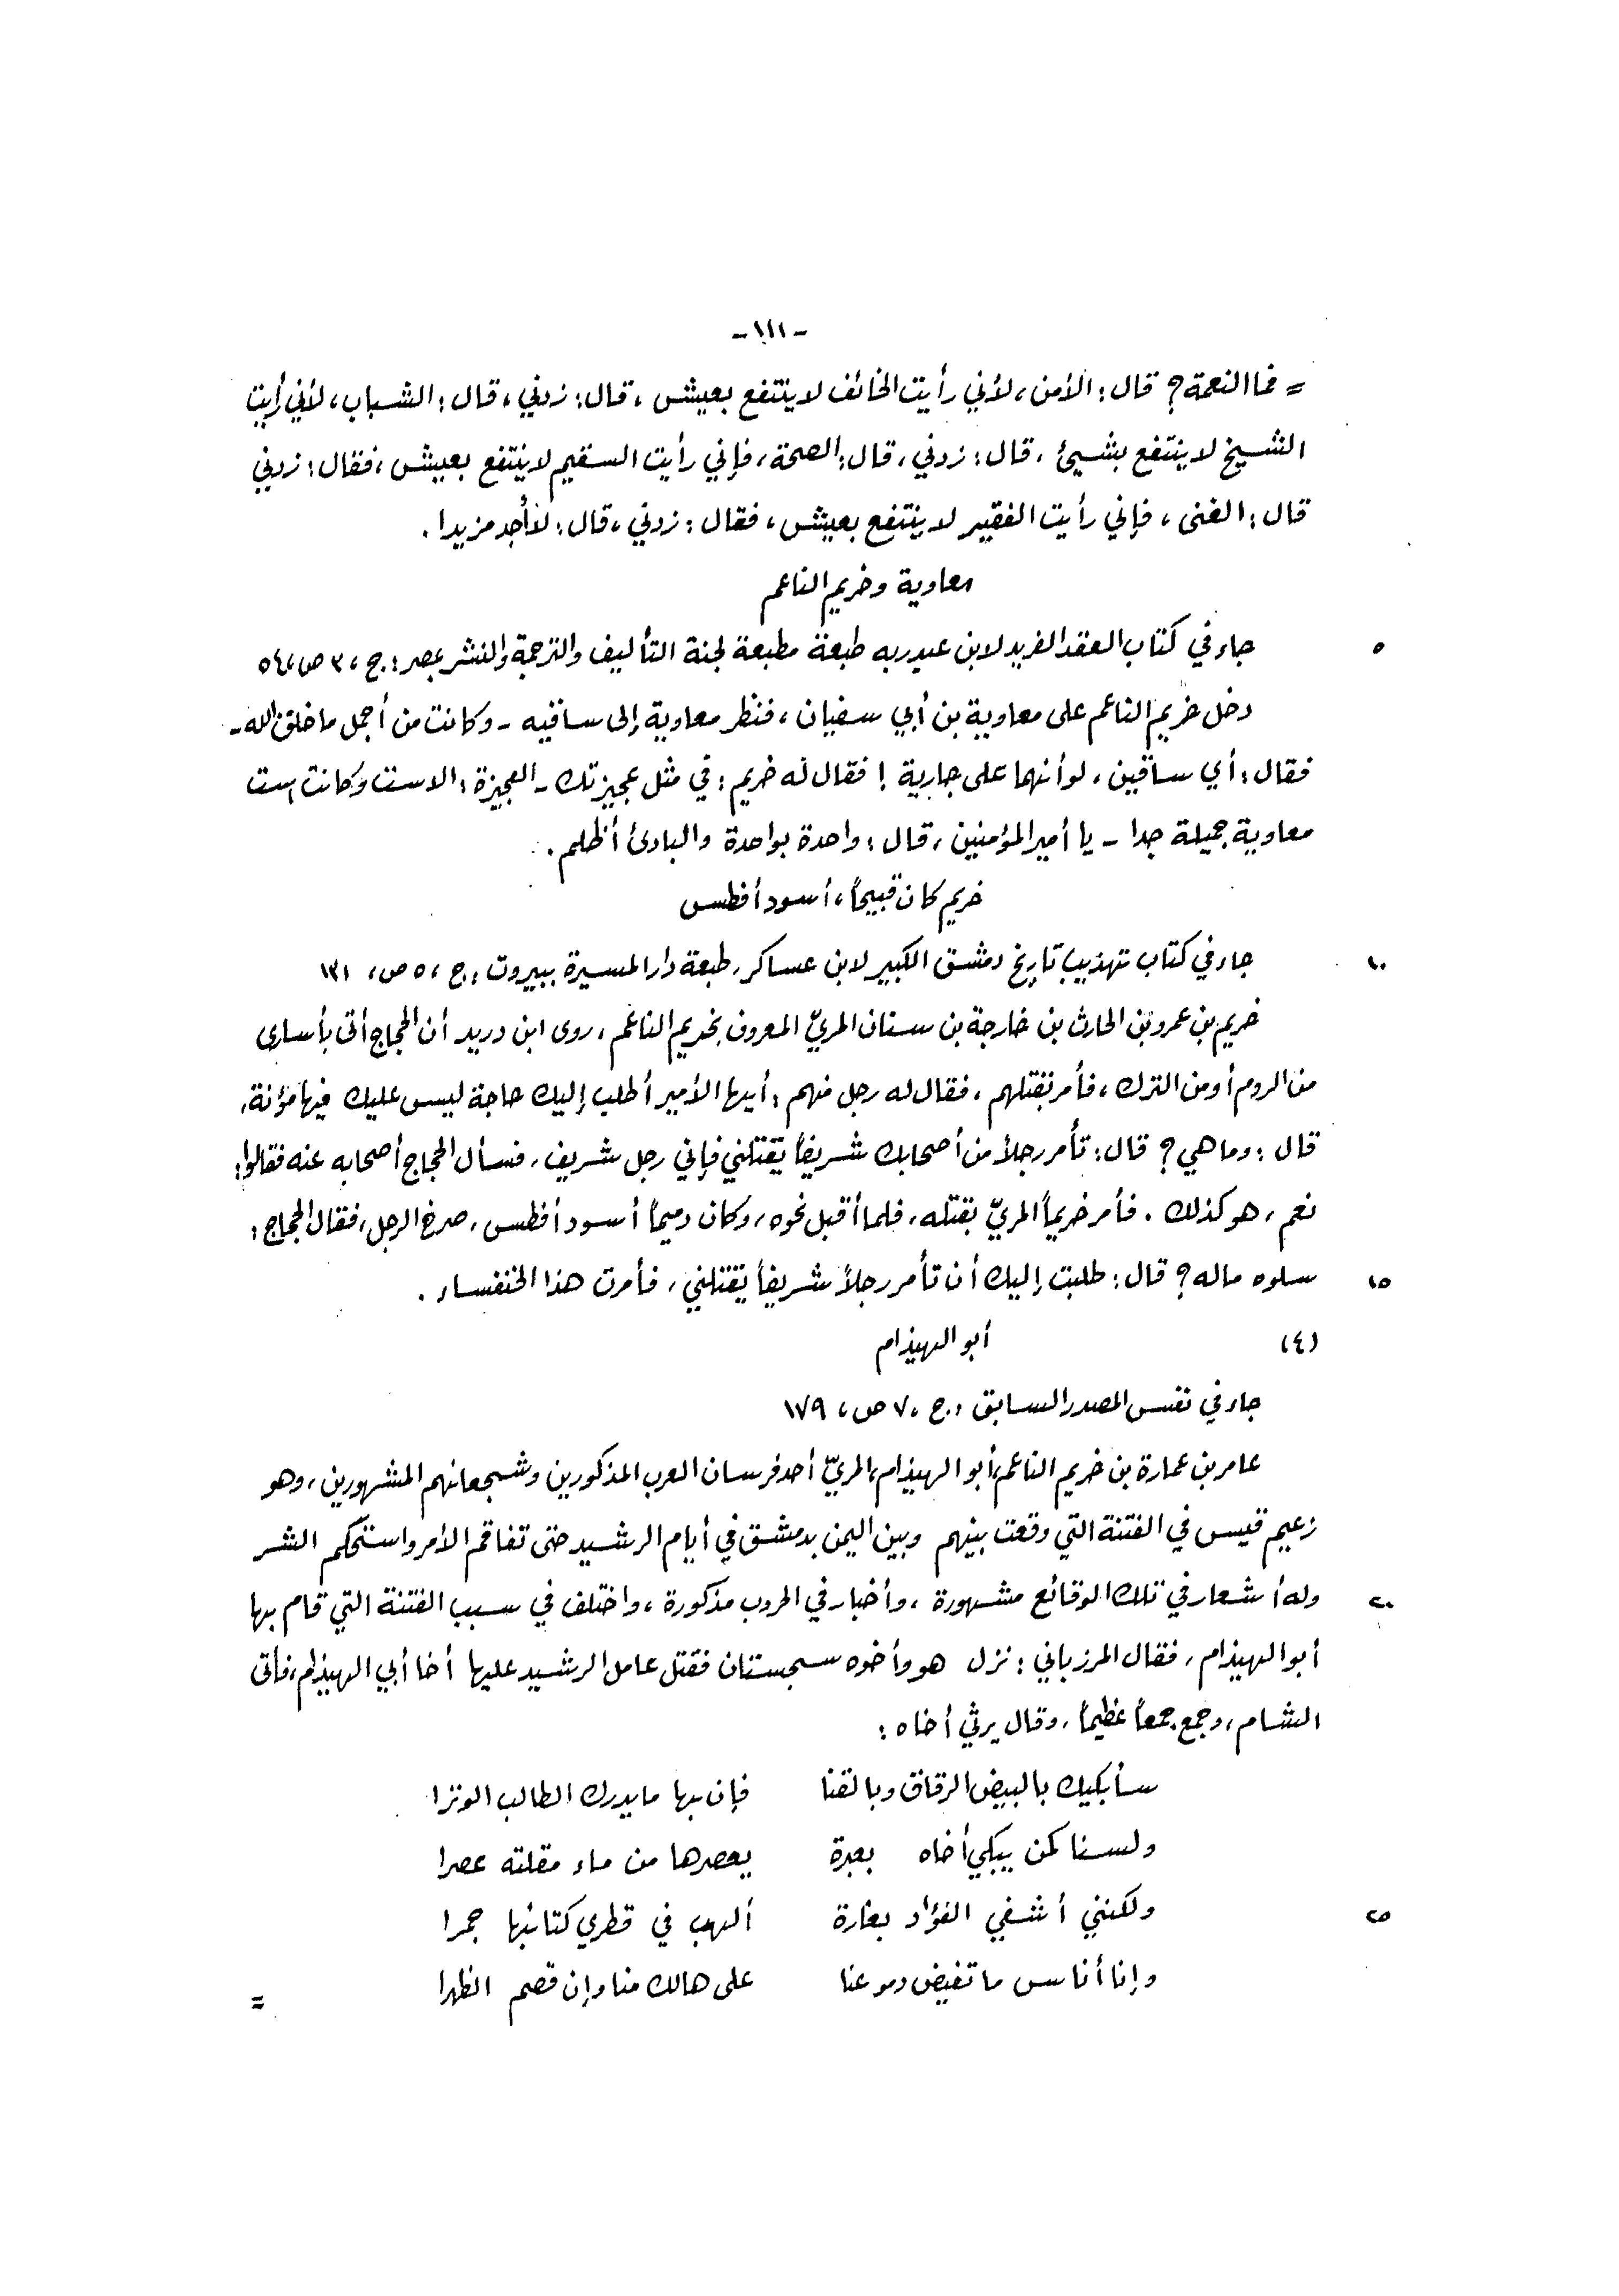 -١١١-
= فما النعمة؟ قال: الأمن، لأني رأيت الخائف لا ينتفع بعيش، قال: زدني، قال: الشباب، لأني رأيت
الشيخ لا ينتفع بشيئ، قال: زدني، قال: الصحة، فإني رأيت السقيم لا ينتفع بعيش، فقال: زدني
قال: الغنى، فإني رأيت الفقير لا ينتفع بعيش، فقال: زدني، قال: لا أجد مزيدا.
معاوية وخريم الناعم
٥ جاء في كتاب العقد الفريد لابن عبد ربه طبعة مطبعة لجنة التأليف والترجمة والنشر بمصر: ج، ٣ ص، ٥٤
دخل خريم الناعم على معاوية بن أبي سفيان، فنظر معاوية إلى ساقيه - وكانت من أجمل ما خلق الله -
فقال: أي ساقين، لو أنهما على جارية! فقال له خريم: في مثل عجيزتك - العجيزة: الاست وكانت است
معاوية جميلة جدا - يا أمير المؤمنين، قال: واحدة بواحدة والبادئ أظلم.
خريم كان قبيحاً، أسود أفطس
١٠ جاء في كتاب تهذيب تاريخ دمشق الكبير لابن عساكر، طبعة دار المسيرة ببيروت: ج، ٥ ص، ١٣١
خريم بن عمرو بن الحارث بن خارجة بن سنان المريّ المعروف بخريم الناعم، روى ابن دريد أن الحجاج أتى بأسارى
من الروم أو من الترك، فأمر بقتلهم، فقال له رجل منهم: أيها الأمير أطلب إليك حاجة ليس عليك فيها مؤنة،
قال: وما هي؟ قال: تأمر رجلاً من أصحابك شريفاً يقتلني فإني رجل شريف، فسأل الحجاج أصحابه عنه فقالوا:
نعم، هو كذلك. فأمر خريماً المريّ بقتله، فلما أقبل نحوه، وكان دميماً أسود أفطس، صرخ الرجل، فقال الحجاج:
١٥ سلوه ماله؟ قال: طلبت إليك أن تأمر رجلاً شريفاً يقتلني، فأمرت هذا الخنفساء.
(٤) أبو الهيذام
جاء في نفس المصدر السابق: ج، ٧ ص، ١٧٩
عامر بن عمارة بن خريم الناعم، أبو الهيذام، المريّ أحد فرسان العرب المذكورين وشجعانهم المشهورين، وهو
زعيم قيس في الفتنة التي وقعت بينهم وبين اليمن بدمشق في أيام الرشيد حتى تفاقم الأمر واستحكم الشر
٢٠ وله أشعار في تلك الوقائع مشهورة، وأخبار في الحروب مذكورة، واختلف في سبب الفتنة التي قام بها
أبو الهيذام، فقال المرزباني: نزل هو وأخوه سجستان فقتل عامل الرشيد عليها أخا أبي الهيذام، فأتى
الشام، وجمع جمعاً عظيماً، وقال يرثي أخاه:
سأبكيك بالبيض الرقاق وبالقنا فإن بها ما يدرك الطالب الوترا
ولسنا كمن يبكي أخاه بعبرة يعصرها من ماء مقلته عصرا
٢٥ ولكنني أشفي الفؤاد بغارة ألهب في قطري كتائبها جمرا
وإنا أناس ما تفيض دموعنا على هالك منا وإن قصم الظهرا =